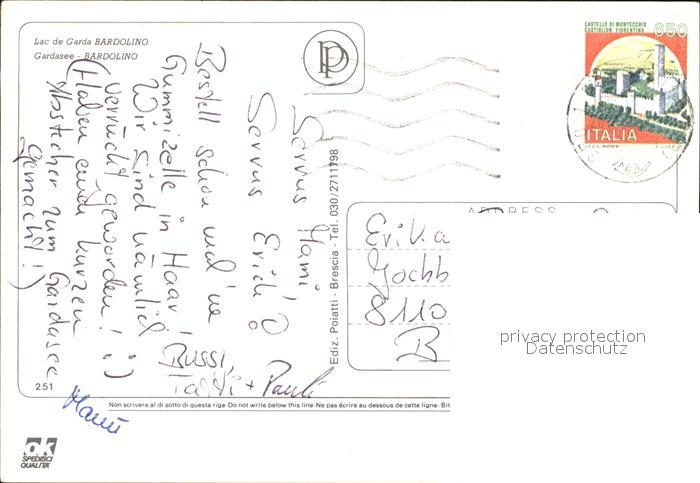 Lac de Garda BARDOLINO
Gardasee - BARDOLINO
CASTELLO DI MONTECCHIO
CASTIGLION FIORENTINO
650
ITALIA
I.P.Z.S. ROMA
Servus Mami,
Servus Erich!
Bestell schon mal 'ne
Gummizelle in Haar!
Wir sind nämlich
verrückt geworden! :)
(Haben einen kurzen
Abstecher zum Gardasee
gemacht!)
Bussi,
+ Pauli
Mami
Ediz. Poiatti - Brescia - Tel. 030/2711798
ADDRESS
Erika
8110
B
privacy protection
Datenschutz
251
Non scrivere al di sotto di questa riga-Do not write below this line-Ne pas écrire au dessous de cette ligne- Bit
ok
SPEDISCI
QUALITA'